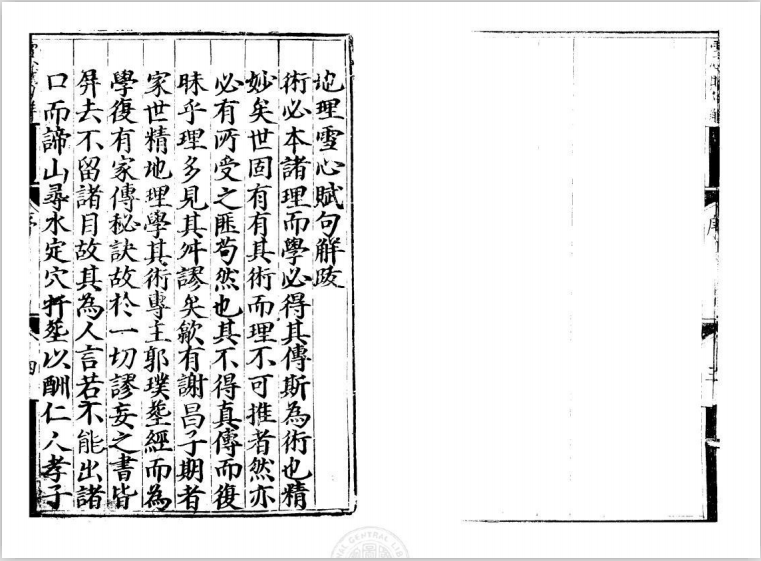 地理雪心賦句解跋
術必本諸理而學必得其傳斯為術也精
妙矣世固有有其術而理不可推者然亦
必有所受之匪苟然也其不得真傳而復
昧乎理多見其舛謬矣歙有謝昌子期者
家世精地理學其術專主郭璞塟經而為
學復有家傳秘訣故於一切謬妄之書皆
屏去不留諸目故其為人言若不能出諸
口而諦山尋水定穴扦塟以酬仁人孝子
序
四
序
三